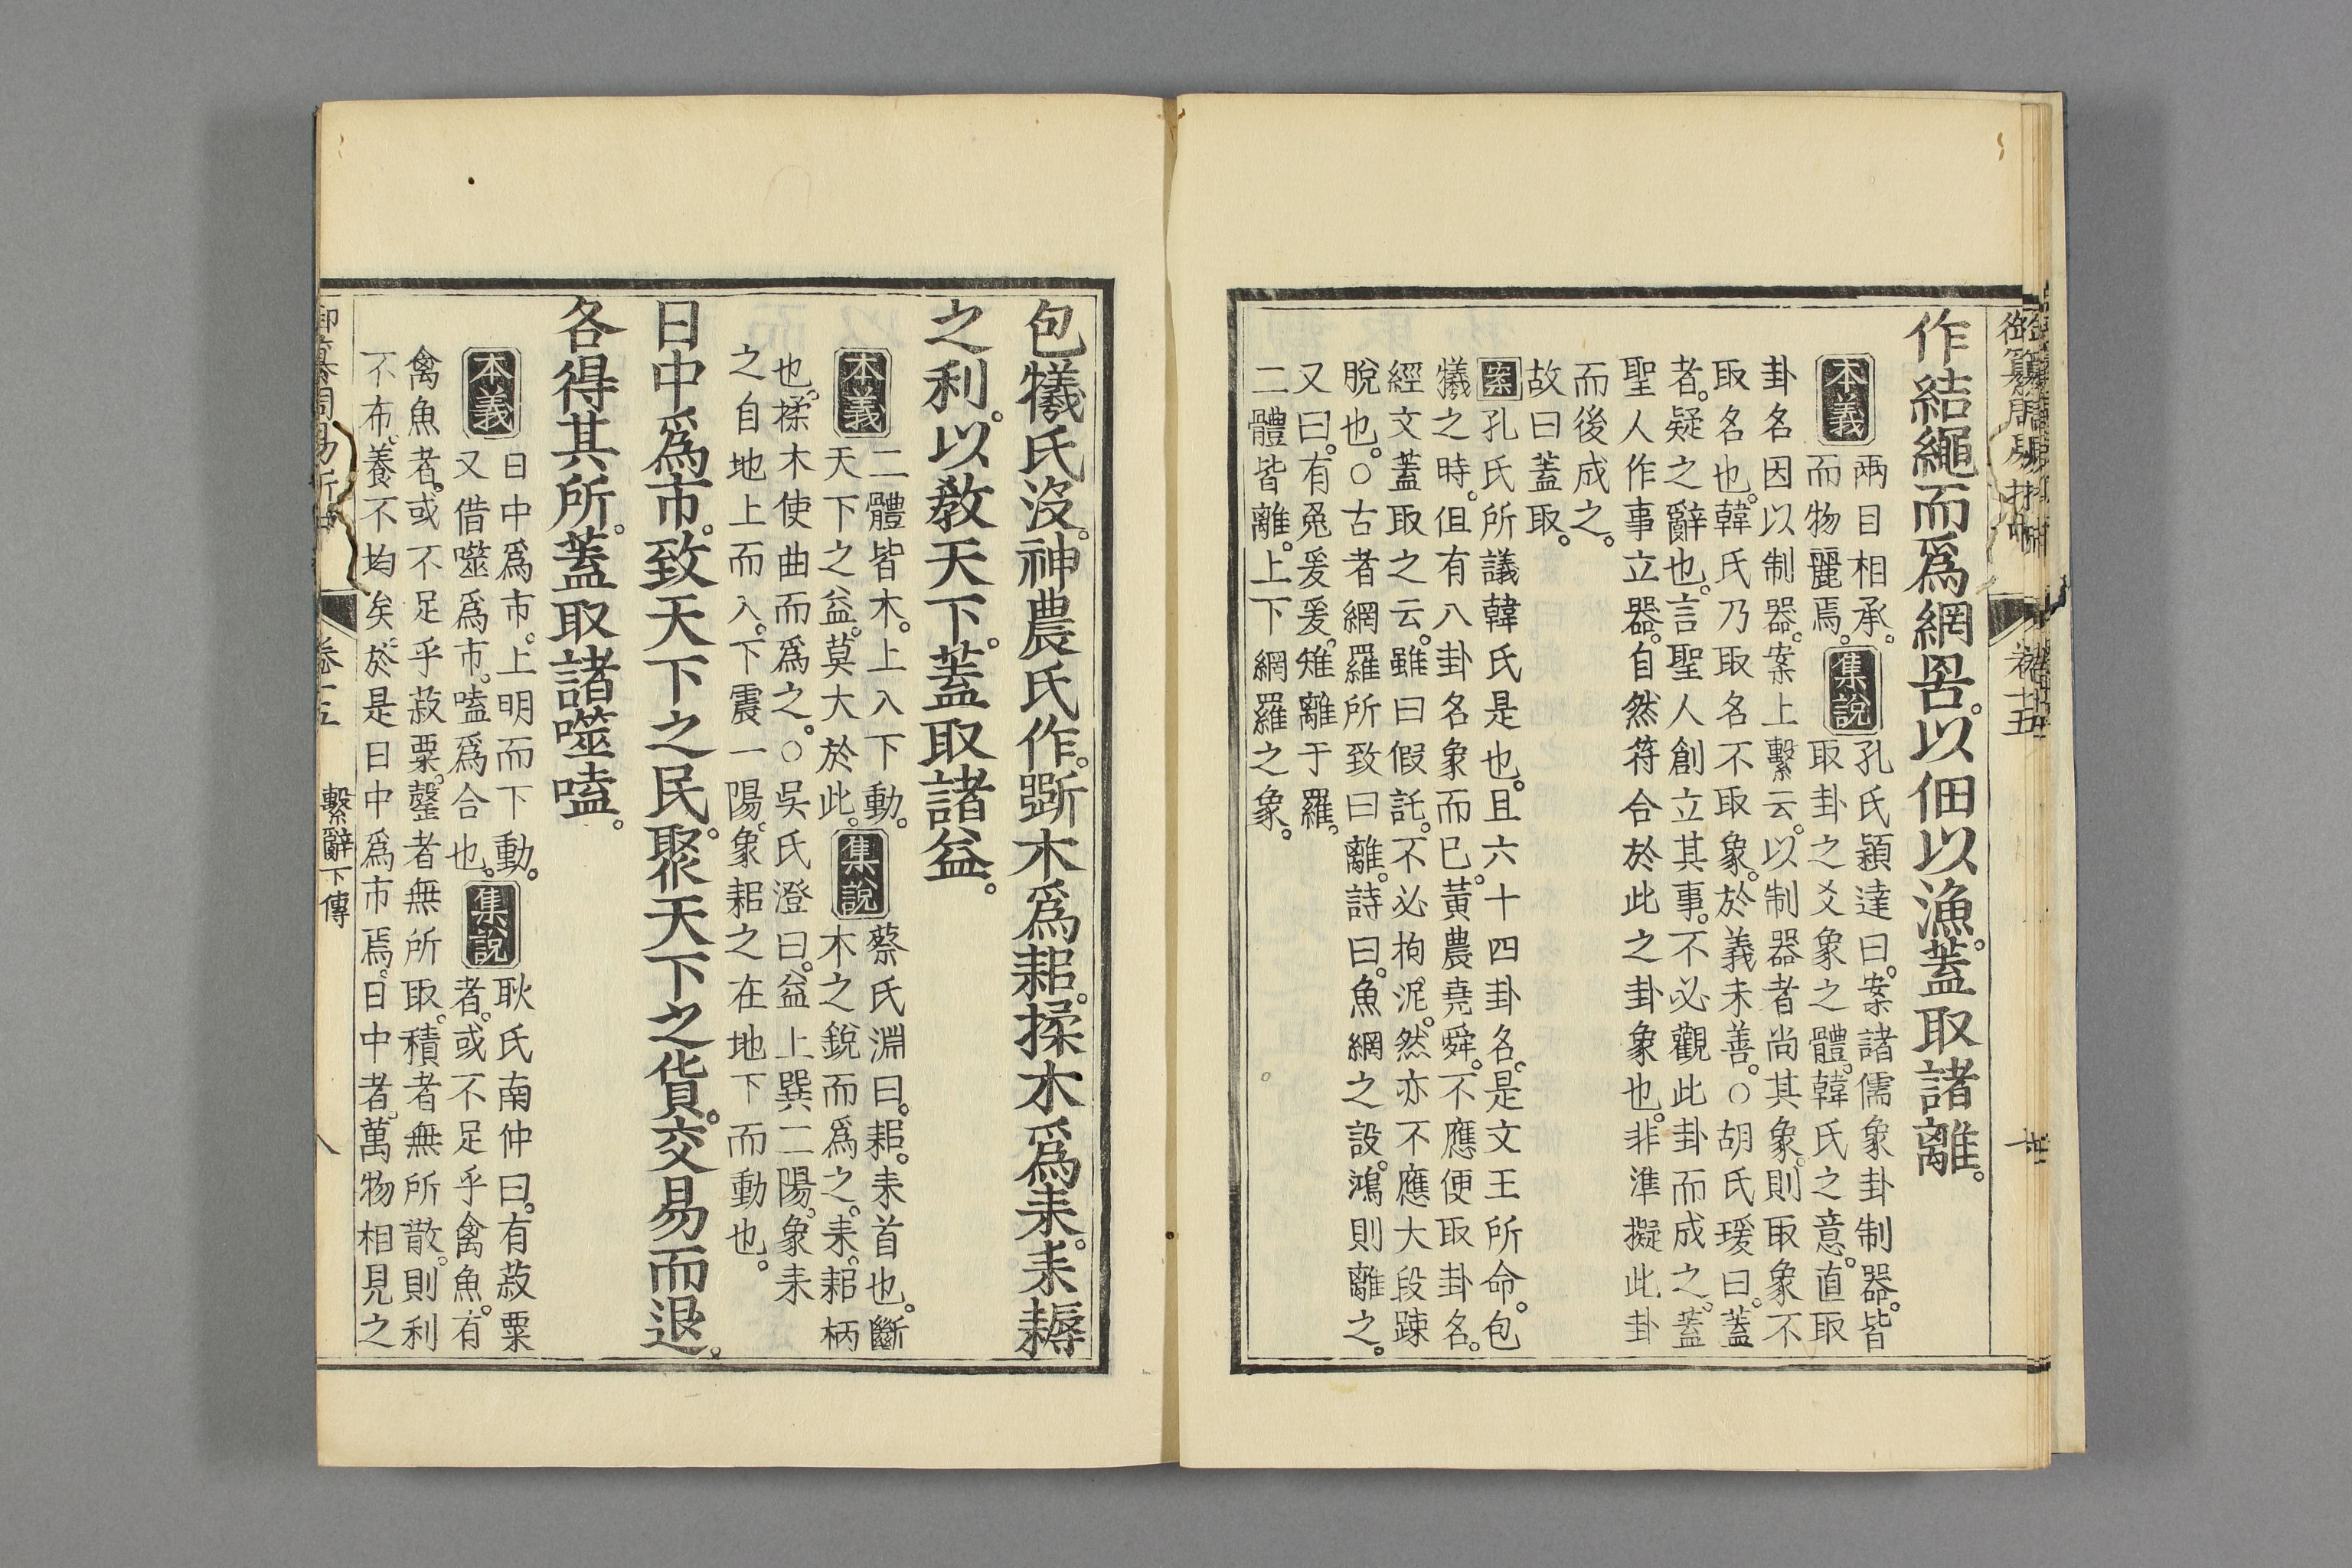 作結繩而爲網罟。以佃以漁。蓋取諸離。
本義
兩目相承。
而物麗焉。
集說
孔氏穎達曰。案諸儒象卦制器。皆
取卦之爻象之體。韓氏之意。直取
卦名因以制器。案上繫云。以制器者尚其象。則取象不
取名也。韓氏乃取名不取象。於義未善。○胡氏瑗曰。蓋
者。疑之辭也。言聖人創立其事。不必觀此卦而成之。蓋
聖人作事立器。自然符合於此之卦象也。非準擬此卦
而後成之。
故曰蓋取。
案孔氏所議韓氏是也。且六十四卦名。是文王所命。包
犧之時。但有八卦名象而已。黃農堯舜。不應便取卦名。
經文蓋取之云。雖曰假託。不必拘泥。然亦不應大段踈
脫也。○古者網羅所致曰離。詩曰。魚網之設。鴻則離之。
又曰。有兔爰爰。雉離于羅。
二體皆離。上下網羅之象。
包犧氏沒。神農氏作。斲木爲耜。揉木爲耒。耒耨
之利。以敎天下。蓋取諸益。
本義
二體皆木。上入下動。
天下之益。莫大於此。
集說
蔡氏淵曰。耜。耒首也。斷
木之銳而爲之。耒。耜柄
也。揉木使曲而爲之。○吳氏澄曰。益上巽二陽。象耒
之自地上而入。下震一陽。象耜之在地下而動也。
日中爲市。致天下之民。聚天下之貨。交易而退。
各得其所。蓋取諸噬嗑。
本義
日中爲市。上明而下動。
又借噬爲市。嗑爲合也。
集說
耿氏南仲曰。有菽粟
者。或不足乎禽魚。有
禽魚者。或不足乎菽粟。罄者無所取。積者無所散。則利
不布。養不均矣。於是日中爲市焉。日中者。萬物相見之
卷十五
繫辭下傳
八